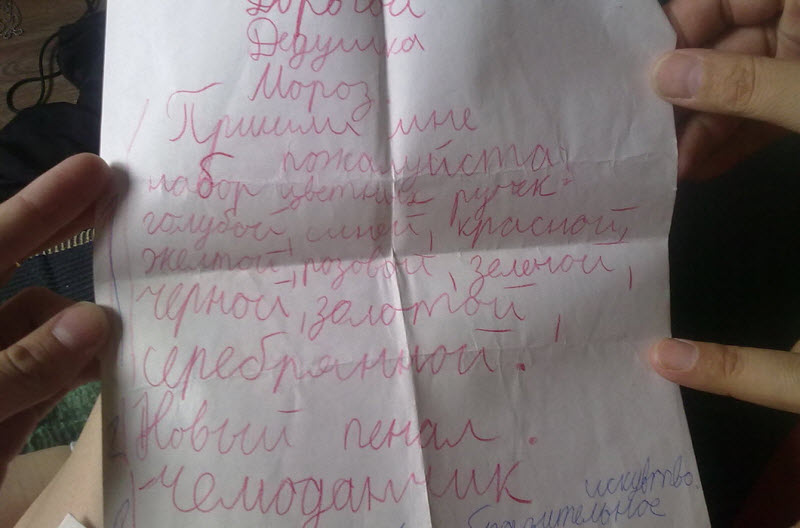 Дорогой
Дедушка
Мороз
Пришли мне
пожалуйста,
набор цветных ручек
голубой, синей, красной,
желтой, розовой, зеленой,
черной, золотой,
серебрянной.
Новый пенал.
чемоданчик
искувство.